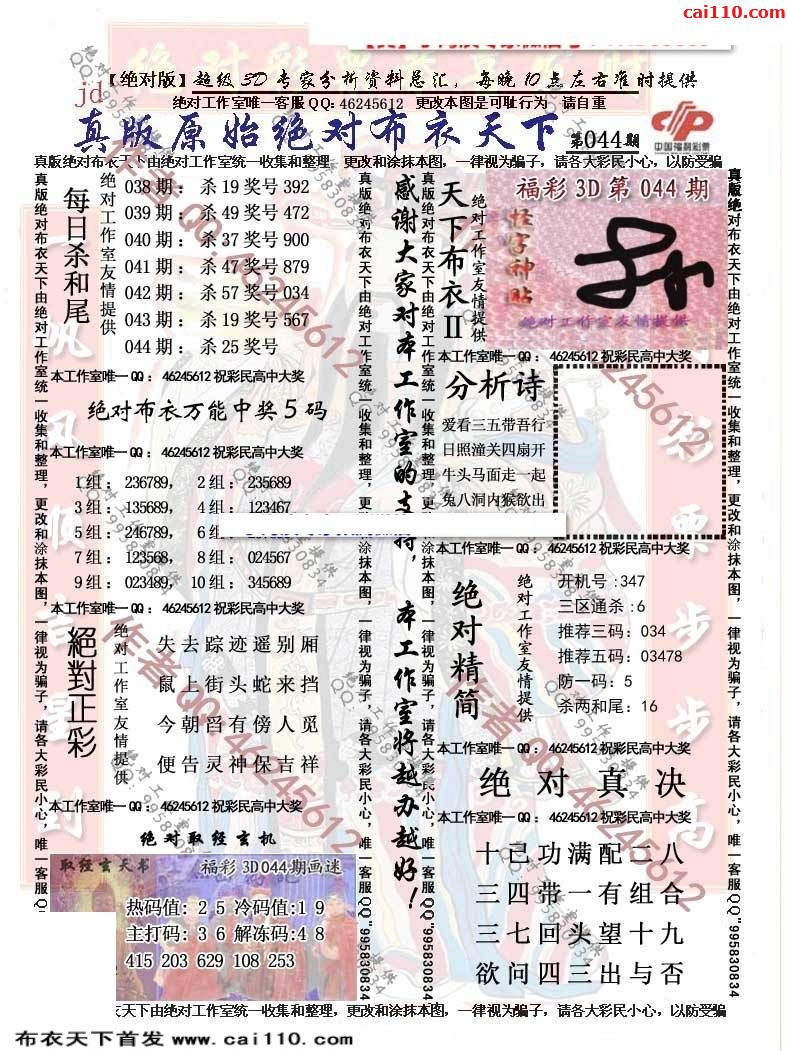 cai110.com
【绝对版】超级3D专家分析资料总汇，每晚10点左右准时提供
jd
绝对工作室唯一客服QQ：46245612 更改本图是可耻行为 请自重
真版原始绝对布衣天下
第044期
中国福利彩票
真版绝对布衣天下由绝对工作室统一收集和整理，更改和涂抹本图，一律视为骗子，请各大彩民小心，以防受骗
真版绝对布衣天下由绝对工作室统一收集和整理，更改和涂抹本图，一律视为骗子，请各大彩民小心，唯一客服QQ
每日杀和尾
绝对工作室友情提供
038期：杀19奖号392
039期：杀49奖号472
040期：杀37奖号900
041期：杀47奖号879
042期：杀57奖号034
043期：杀19奖号567
044期：杀25奖号
本工作室唯一QQ：46245612祝彩民高中大奖
绝对布衣万能中奖5码
本工作室唯一QQ：46245612祝彩民高中大奖
1组：236789，2组：235689
3组：135689，4组：123467
5组：246789，6组
7组：123568，8组：024567
9组：023489，10组：345689
本工作室唯一QQ：46245612祝彩民高中大奖
絕對正彩
绝对工作室友情提供
失去踪迹遥别厢
鼠上街头蛇来挡
今朝舀有傍人觅
便告灵神保吉祥
本工作室唯一QQ：46245612祝彩民高中大奖
绝对取经玄机
取经玄天书
福彩3D044期画迷
热码值：25冷码值:19
主打码：36解冻码:48
415 203 629 108 253
真版绝对布衣天下由绝对工作室统一收集和整理，更
涂抹本图，一律视为骗子，请各大彩民小心，唯一客服QQ"995830834
感谢大家对本工作室的支持，本工作室将越办越好！
真版绝对布衣天下由绝对工作室统一收集和整理，更
涂抹本图，一律视为骗子，请各大彩民小心，唯一客服QQ"995830834
天下布衣II
绝对工作室友情提供
福彩3D第044期
怪字神贴
绝对工作室友情提供
本工作室唯一QQ：46245612祝彩民高中大奖
分析诗
爱看三五带吾行
日照潼关四扇开
牛头马面走一起
兔八洞内猴欲出
本工作室唯一QQ：46245612祝彩民高中大奖
绝对精简
绝对工作室友情提供
开机号:347
三区通杀:6
推荐三码：034
推荐五码：03478
防一码：5
杀两和尾：16
本工作室唯一QQ：46245612祝彩民高中大奖
绝对真决
本工作室唯一QQ：46245612祝彩民高中大奖
十已功满配二八
三四带一有组合
三七回头望十九
欲问四三出与否
真版绝对布衣天下由绝对工作室统一收集和整理，更改和涂抹本图，一律视为骗子，请各大彩民小心，唯一客服QQ"995830834
衣天下由绝对工作室统一收集和整理，更改和涂抹本图，一律视为骗子，请各大彩民小心，以防受骗
布衣天下首发 www.cai110.com